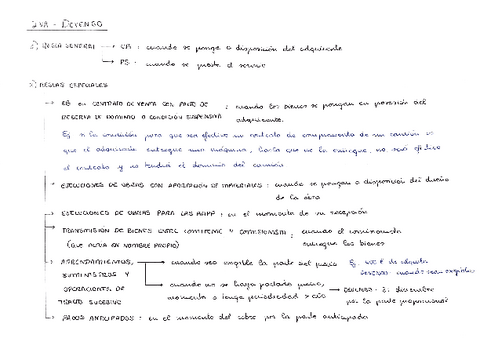 IVA - DEVENGO
1) REGLA GENERAL → EB : cuando se ponga a disposición del adquirente
→ PS : cuando se preste el servicio
2) REGLAS ESPECIALES
→ EB en CONTRATO DE VENTA CON PACTO DE RESERVA DE DOMINIO O CONDICIÓN SUSPENSIVA : cuando los bienes se pongan en posesión del adquirente.
Ej. si la condición para que sea efectivo un contrato de compraventa de un camión es
que el adquirente entregue una máquina, hasta que no la entregue, no será efectivo
el contrato y no tendrá el dominio del camión
→ EJECUCIONES DE OBRAS CON APORTACIÓN DE MATERIALES : cuando se pongan a disposición del dueño
de la obra
→ EJECUCIONES DE OBRAS PARA LAS AAPP : en el momento de su recepción
→ TRANSMISIÓN DE BIENES ENTRE COMITENTE Y COMISIONISTA : cuando el comisionista
(QUE ACTÚA EN NOMBRE PROPIO) entregue los bienes
→ ARRENDAMIENTOS, → cuando sea exigible la parte del precio Ej.
SUMINISTROS Y DEVENGO : cuando sea exigible
OPERACIONES DE → cuando no se haya pactado precio, → DEVENGO : 31 diciembre
TRACTO SUCESIVO momento o tenga periodicidad > año por la parte proporcional
→ PAGOS ANTICIPADOS : en el momento del cobro por la parte anticipada